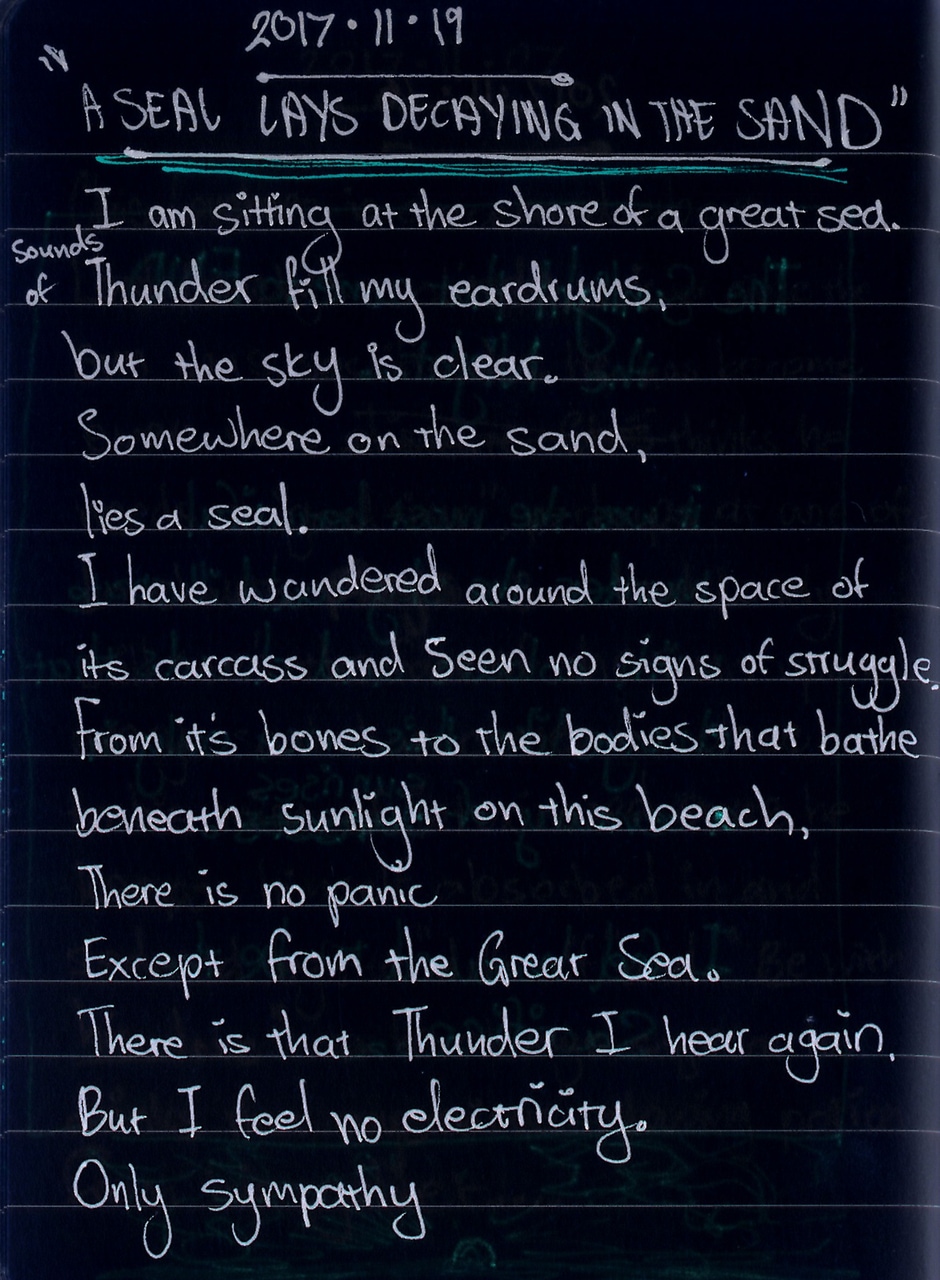 2017·11·19
"A SEAL LAYS DECAYING IN THE SAND"
I am sitting at the shore of a great sea.
Sounds
of Thunder fill my eardrums,
but the sky is clear.
Somewhere on the sand,
lies a seal.
I have wandered around the space of
its carcass and Seen no signs of struggle.
From it's bones to the bodies that bathe
beneath sunlight on this beach,
There is no panic
Except from the Great Sea.
There is that Thunder I hear again.
But I feel no electricity.
Only sympathy